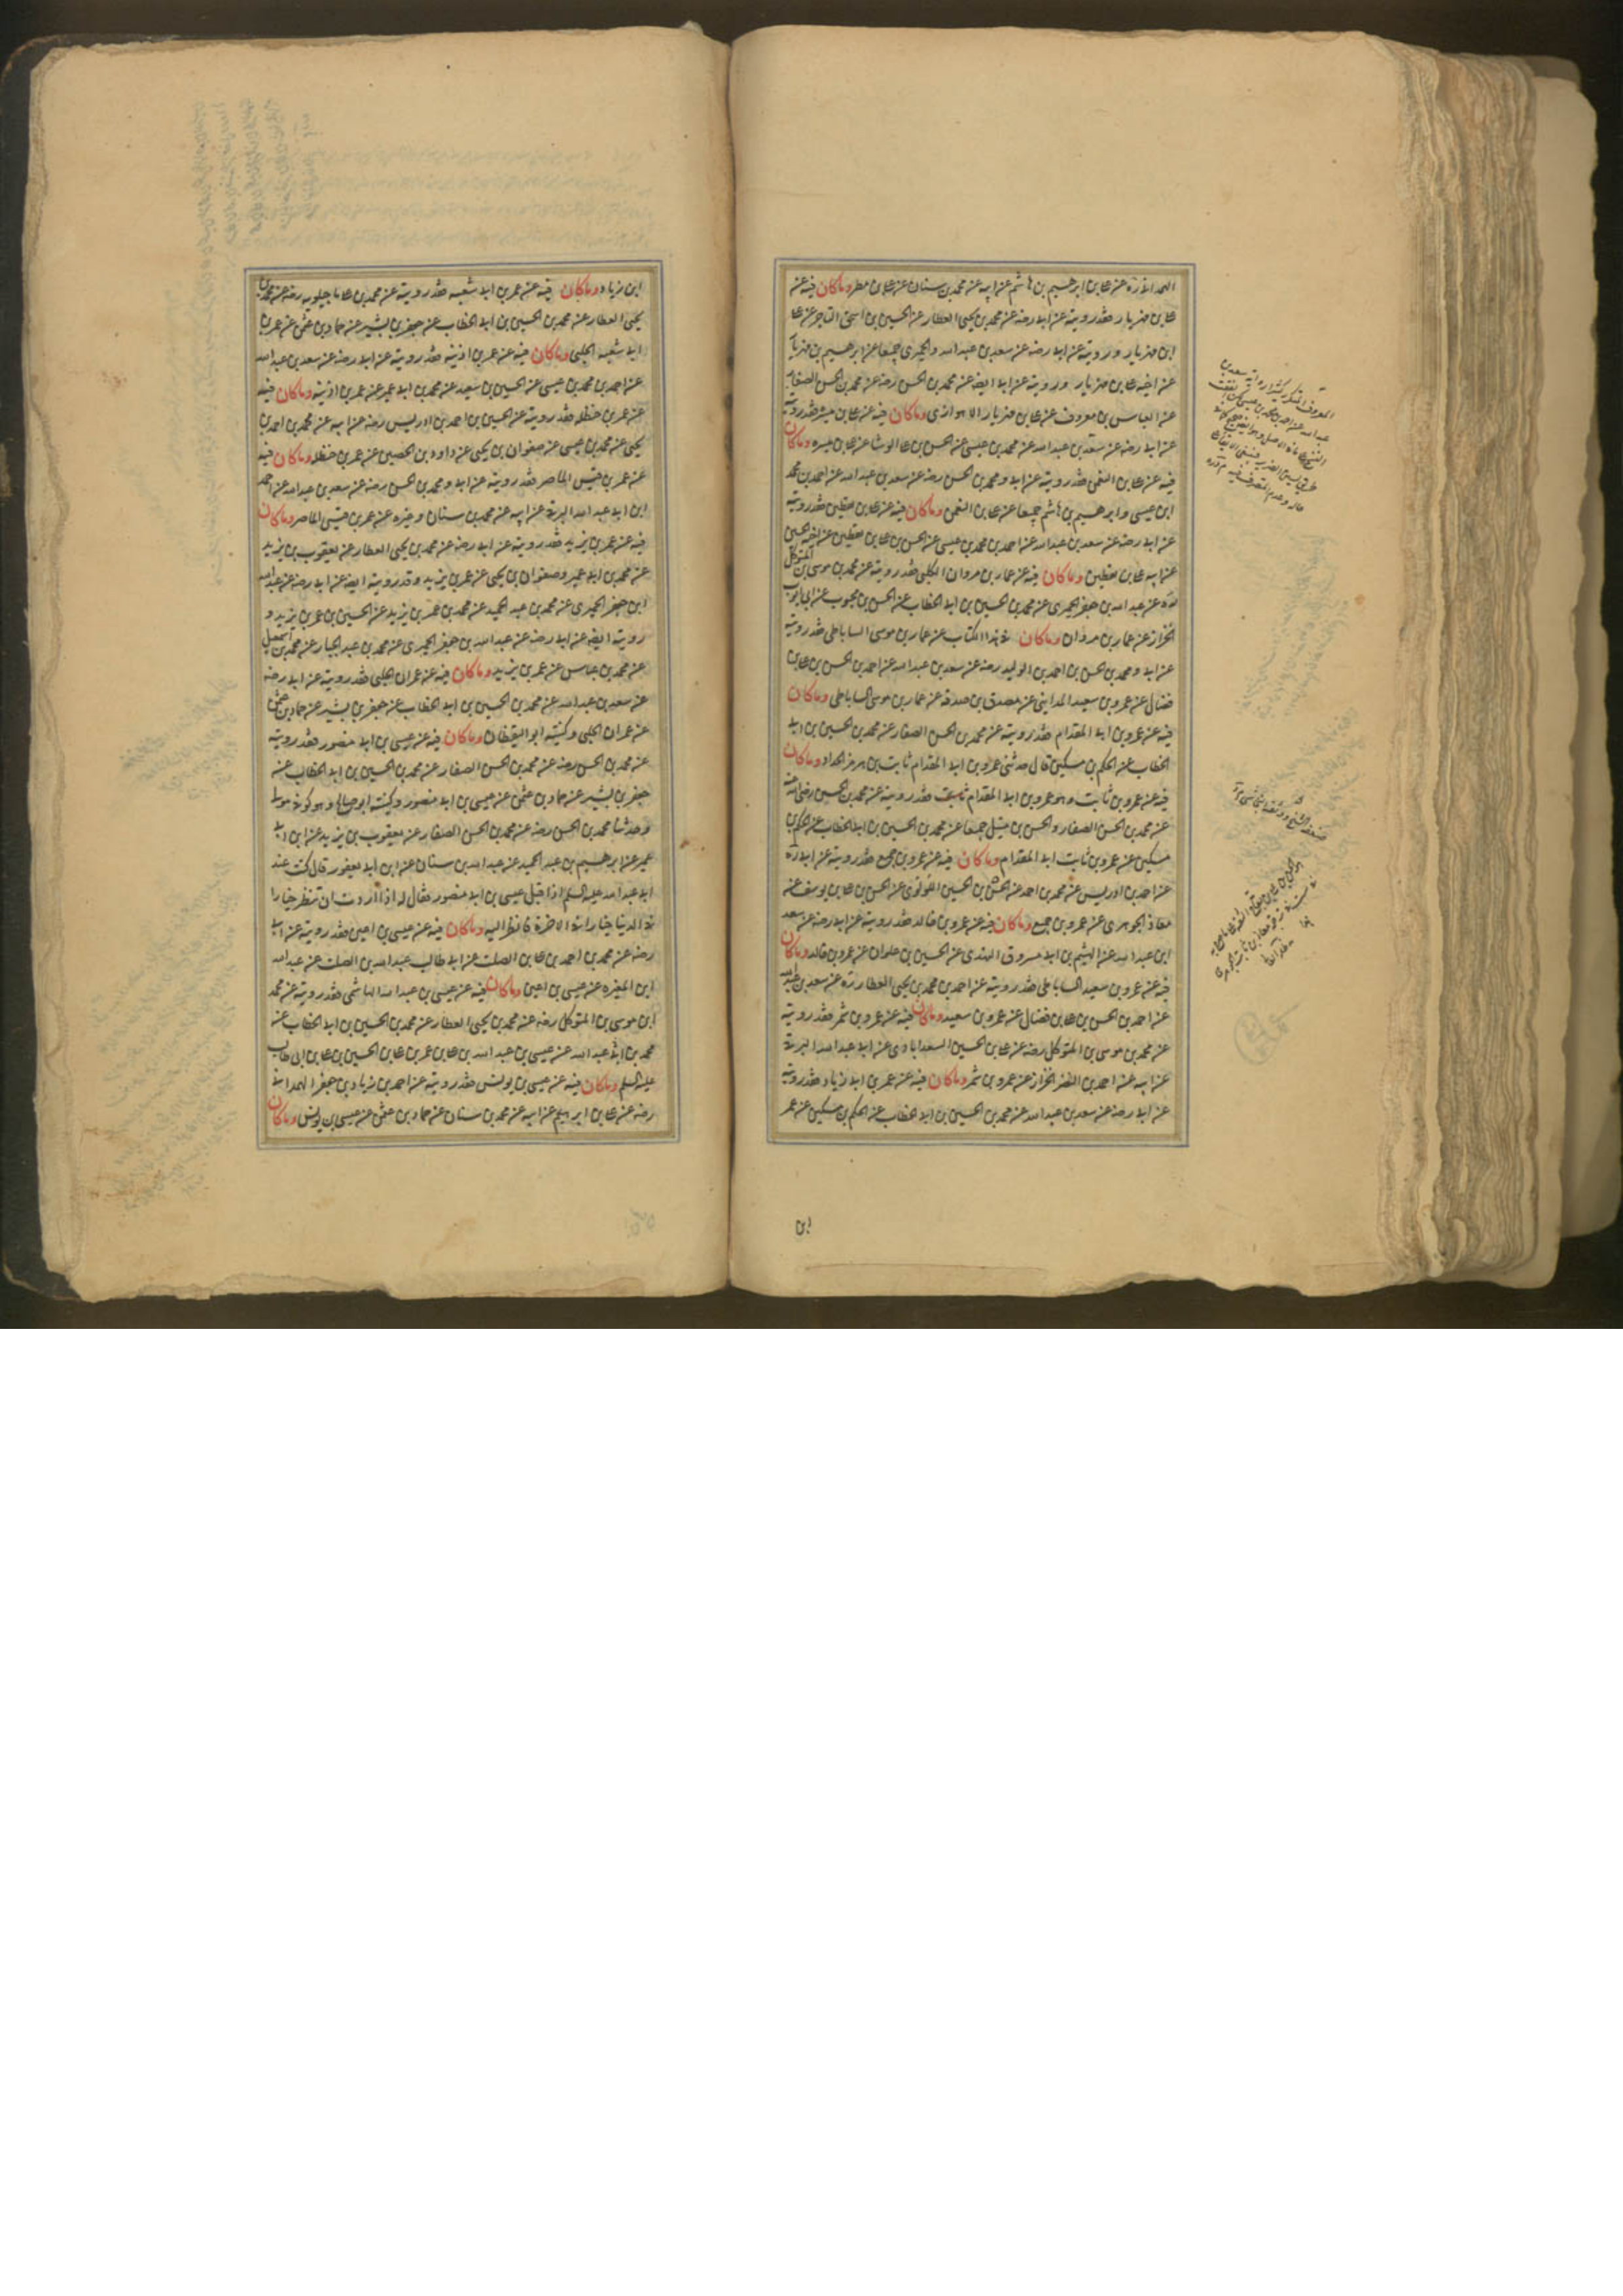 الهمدانی ره عن علی بن ابرهیم بن هاشم عن ابیه عن محمد بن سنان عن علی بن مطر وماکان فیه عن
علی بن مهزیار فقد رویته عن ابی رضه عن محمد بن یحیی العطار عن الحسین بن اسحق التاجر عن علی
ابن مهزیار ورویته عن ابی رضه عن سعد بن عبد الله والحمیری جمیعا عن ابرهیم بن مهزیار
عن اخیه علی بن مهزیار ورویته عن ابی ایضه عن محمد بن الحسن رضه عن محمد بن الحسن الصفار
عن العباس بن معروف عن علی بن مهزیار الاهوازی وماکان فیه عن علی بن میسر فقد رویته
عن ابی رضه عن سعد بن عبد الله عن محمد بن عیسی عن الحسن بن علی الوشا عن علی بن میسره وماکان
فیه عن علی بن النعمن فقد رویته عن ابی ومحمد بن الحسن رضه عن سعد بن عبد الله عن احمد بن محمد
ابن عیسی وابرهیم بن هاشم جمیعا عن علی بن النعمن وماکان فیه عن علی بن یقطین فقد رویته
عن ابی رضه عن سعد بن عبد الله عن احمد بن محمد بن عیسی عن الحسن بن علی بن یقطین عن اخیه الحسین
عن ابیه علی بن یقطین وماکان فیه عن عمار بن مروان الکلبی فقد رویته عن محمد بن موسی بن المتوکل
ره عن عبد الله بن جعفر الحمیری عن محمد بن الحسین بن ابی الخطاب عن الحسن بن محبوب عن ابی ایوب
الخزاز عن عمار بن مروان وماکان فی هذا الکتاب عن عمار بن موسی الساباطی فقد رویته
عن ابی ومحمد بن الحسن بن احمد بن الولید رضه عن سعد بن عبد الله عن احمد بن الحسن بن علی بن
فضال عن عمرو بن سعید المداینی عن مصدق بن صدقه عن عمار بن موسی الساباطی وماکان
فیه عن عمرو بن ابی المقدام فقد رویته عن محمد بن الحسن الصفار عن محمد بن الحسین بن ابی
الخطاب عن الحکم بن مسکین قال حدثنی عمرو بن ابی المقدام ثابت بن هرمز الحداد وماکان
فیه عن عمرو بن ثابت وهو عمرو بن ابی المقدام فقد رویته عن محمد بن الحسن رضی الله عنه
عن محمد بن الحسن الصفار والحسن بن متیل جمیعا عن محمد بن الحسین بن ابی الخطاب عن الحکم بن
مسکین عن عمرو بن ثابت ابی المقدام وماکان فیه عن عمرو بن جمیع فقد رویته عن ابی ره
عن احمد بن ادریس عن محمد بن احمد عن الحسن بن الحسین اللؤلؤی عن الحسن بن علی بن یوسف عن
معاذ الجوهری عن عمرو بن جمیع وماکان فیه عن عمرو بن خالد فقد رویته عن ابی رضه عن سعد
ابن عبد الله عن الهیثم بن ابی مسروق النهدی عن الحسین بن علوان عن عمرو بن خالد وماکان
فیه عن عمرو بن سعید الساباطی فقد رویته عن احمد بن محمد بن یحیی العطار ره عن سعد بن عبد الله
عن احمد بن الحسن بن علی بن فضال عن عمرو بن سعید وماکان فیه عن عمرو بن شمر فقد رویته
عن محمد بن موسی بن المتوکل رضه عن علی بن الحسین السعدابادی عن ابی عبد الله البرقی
عن ابیه عن احمد بن النضر الخزاز عن عمرو بن شمر وماکان فیه عن عمر بن ابی زیاد فقد رویته
عن ابی رضه عن سعد بن عبد الله عن محمد بن الحسین بن ابی الخطاب عن الحکم بن مسکین عن عمر
ابن
ابن زیاد وماکان فیه عن عمر بن ابی شعبه فقد رویته عن محمد بن علی ماجیلویه رضه عن محمد بن
یحیی العطار عن محمد بن الحسین بن ابی الخطاب عن جعفر بن بشیر عن حماد بن عثمن عن عمر بن
ابی شعبه الحلبی وماکان فیه عن عمر بن اذینه فقد رویته عن ابی رضه عن سعد بن عبد الله
عن احمد بن محمد بن عیسی عن الحسین بن سعید عن محمد بن ابی عمیر عن عمر بن اذینه وماکان فیه
عن عمر بن حنظله فقد رویته عن الحسین بن احمد بن ادریس رضه عن ابیه عن محمد بن احمد بن
یحیی عن محمد بن عیسی عن صفوان بن یحیی عن داود بن الحصین عن عمر بن حنظله وماکان فیه
عن عمر بن قیس الماصر فقد رویته عن ابی ومحمد بن الحسن رضه عن سعد بن عبد الله عن احمد
ابن ابی عبد الله البرقی عن ابیه عن محمد بن سنان وغیره عن عمر بن قیس الماصر وماکان
فیه عن عمر بن یزید فقد رویته عن ابی رضه عن محمد بن یحیی العطار عن یعقوب بن یزید
عن محمد بن ابی عمیر وصفوان بن یحیی عن عمر بن یزید وقد رویته ایضه عن ابی رضه عن عبد الله
ابن جعفر الحمیری عن محمد بن عبد الحمید عن محمد بن عمر بن یزید عن الحسین بن عمر بن یزید و
رویته ایضه عن ابی رضه عن عبد الله بن جعفر الحمیری عن محمد بن عبد الجبار عن محمد بن اسمعیل
عن محمد بن عباس عن عمر بن یزید وماکان فیه عن عمران الحلبی فقد رویته عن ابی رضه
عن سعد بن عبد الله عن محمد بن الحسین بن ابی الخطاب عن جعفر بن بشیر عن حماد بن عثمن
عن عمران الحلبی وکنیته ابو الیقظان وماکان فیه عن عیسی بن ابی منصور فقد رویته
عن محمد بن الحسن رضه عن محمد بن الحسن الصفار عن محمد بن الحسین بن ابی الخطاب عن
جعفر بن بشیر عن حماد بن عثمن عن عیسی بن ابی منصور وکنیته ابو صالح وهو کوفی مولی
وحدثنا محمد بن الحسن رضه عن محمد بن الحسن الصفار عن یعقوب بن یزید عن ابن ابی
عمیر عن ابرهیم بن عبد الحمید عن عبد الله بن سنان عن ابن ابی یعفور قال کنت عند
ابی عبد الله علیه السلم اذا اقبل عیسی بن ابی منصور فقال له اذا اردت ان تنظر خیارا
فی الدنیا خیارا فی الاخرة فانظر الیه وماکان فیه عن عیسی بن اعین فقد رویته عن ابی
رضه عن محمد بن احمد بن علی بن الصلت عن ابی طالب عبد الله بن الصلت عن عبد الله
ابن المغیره عن عیسی بن اعین وماکان فیه عن عیسی بن عبد الله الهاشمی فقد رویته عن محمد
ابن موسی بن المتوکل رضه عن محمد بن یحیی العطار عن محمد بن الحسین بن ابی الخطاب عن
محمد بن ابی عبد الله عن عیسی بن عبد الله بن علی بن عمر بن علی بن الحسین بن علی بن ابی طالب
علیه السلم وماکان فیه عن عیسی بن یونس فقد رویته عن احمد بن زیاد بن جعفر الهمدانی
رضه عن علی بن ابرهیم عن ابیه عن محمد بن سنان عن حماد بن عثمن عن عیسی بن یونس وماکان